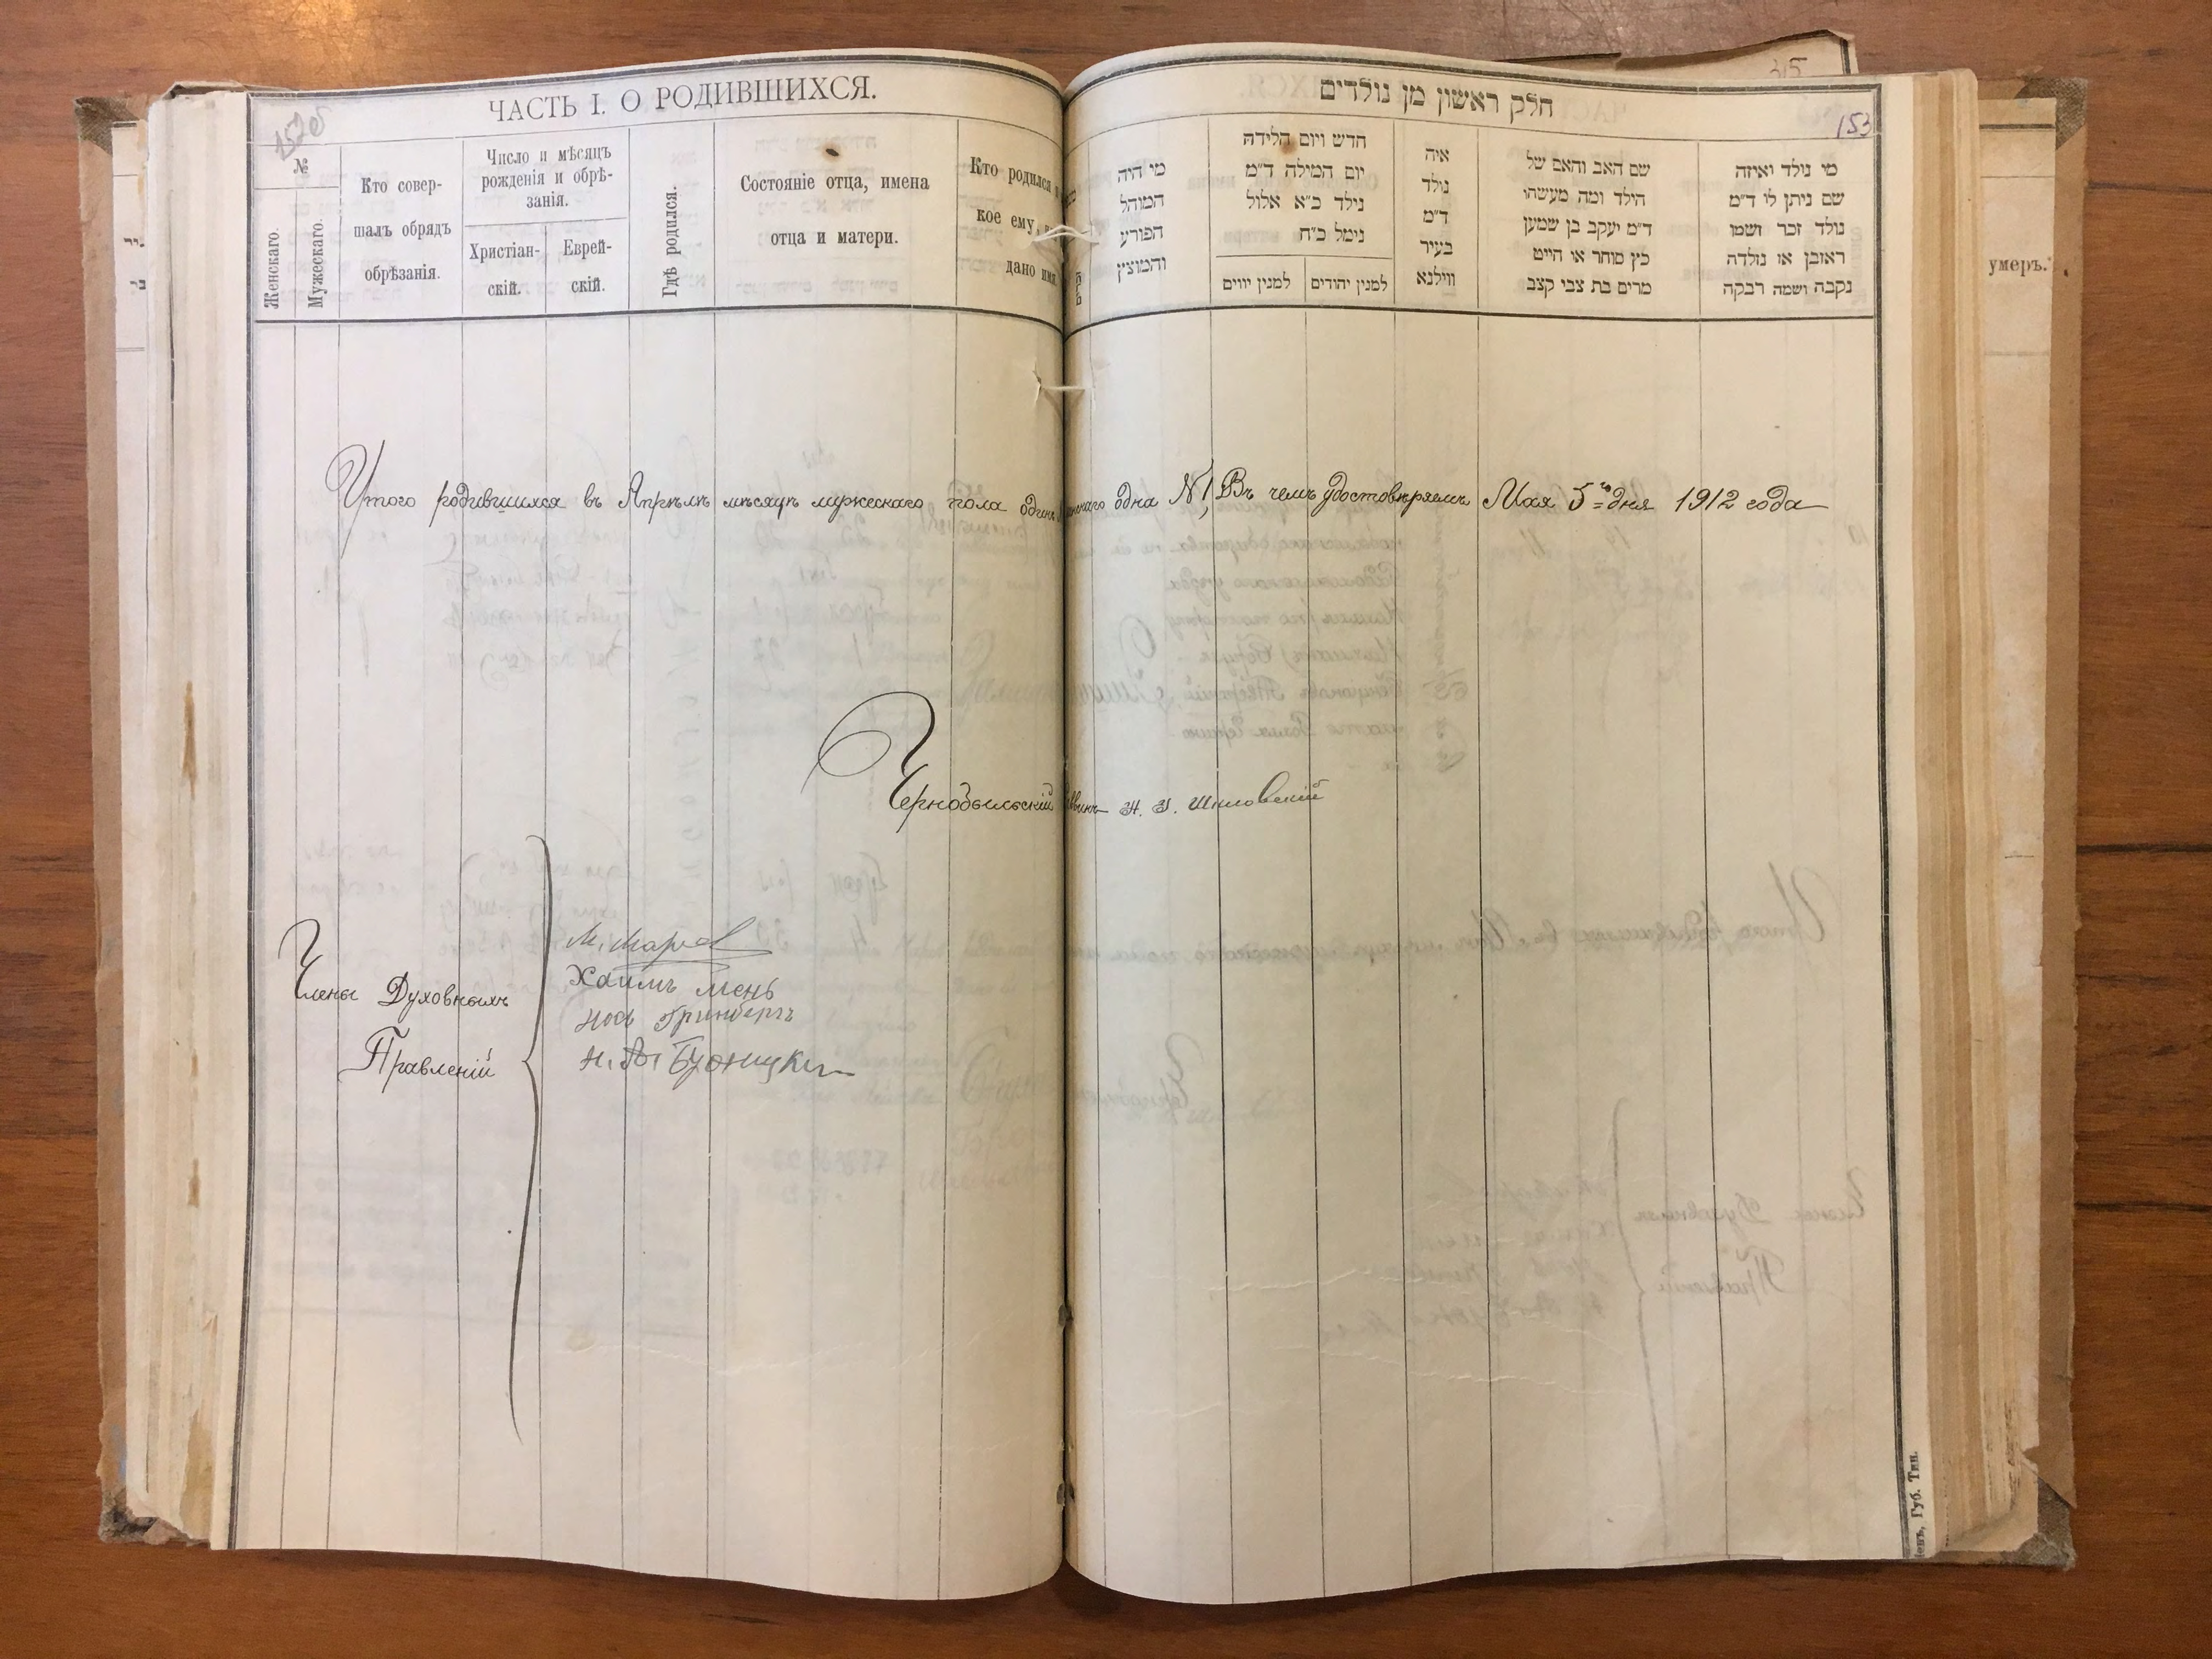 ЧАСТЬ I. О РОДИВШИХСЯ.
№
Женскаго.
Мужескаго.
Кто совер-
шалъ обрядъ
обрѣзанія.
Число и мѣсяцъ
рожденія и обрѣ-
занія.
Христіан-
скій.
Еврей-
скій.
Гдѣ родился.
Состояніе отца, имена
отца и матери.
Кто родился
кое ему
дано имя.
חלק ראשון מן נולדים
153
315
מי היה
המוהל
הפורע
והמוצץ
חדש ויום הלידה
יום המילה ד״מ
נילד כ״א אלול
נימל כ״ח
למנין יווים
למנין יהודים
איה
נולד
ד״מ
בעיר
ווילנא
שם האב והאם של
הילד ומה מעשהו
ד״מ יעקב בן שמען
כץ סוחר או הייט
מרים בת צבי קצב
מי נולד ואיזה
שם ניתן לי ד״מ
נולד זכר ושמו
ראובן או נולדה
נקבה ושמה רבקה
умеръ.
Итого родившихся въ Апрѣлѣ мѣсяцѣ мужескаго пола одинъ одна №1, Въ чемъ удостовѣряемъ Мая 5го дня 1912 года
Чернобыльскій
Члены Духовныхъ
Правленій
Хаимъ Мень
Гринбергъ
Губ. Тип.